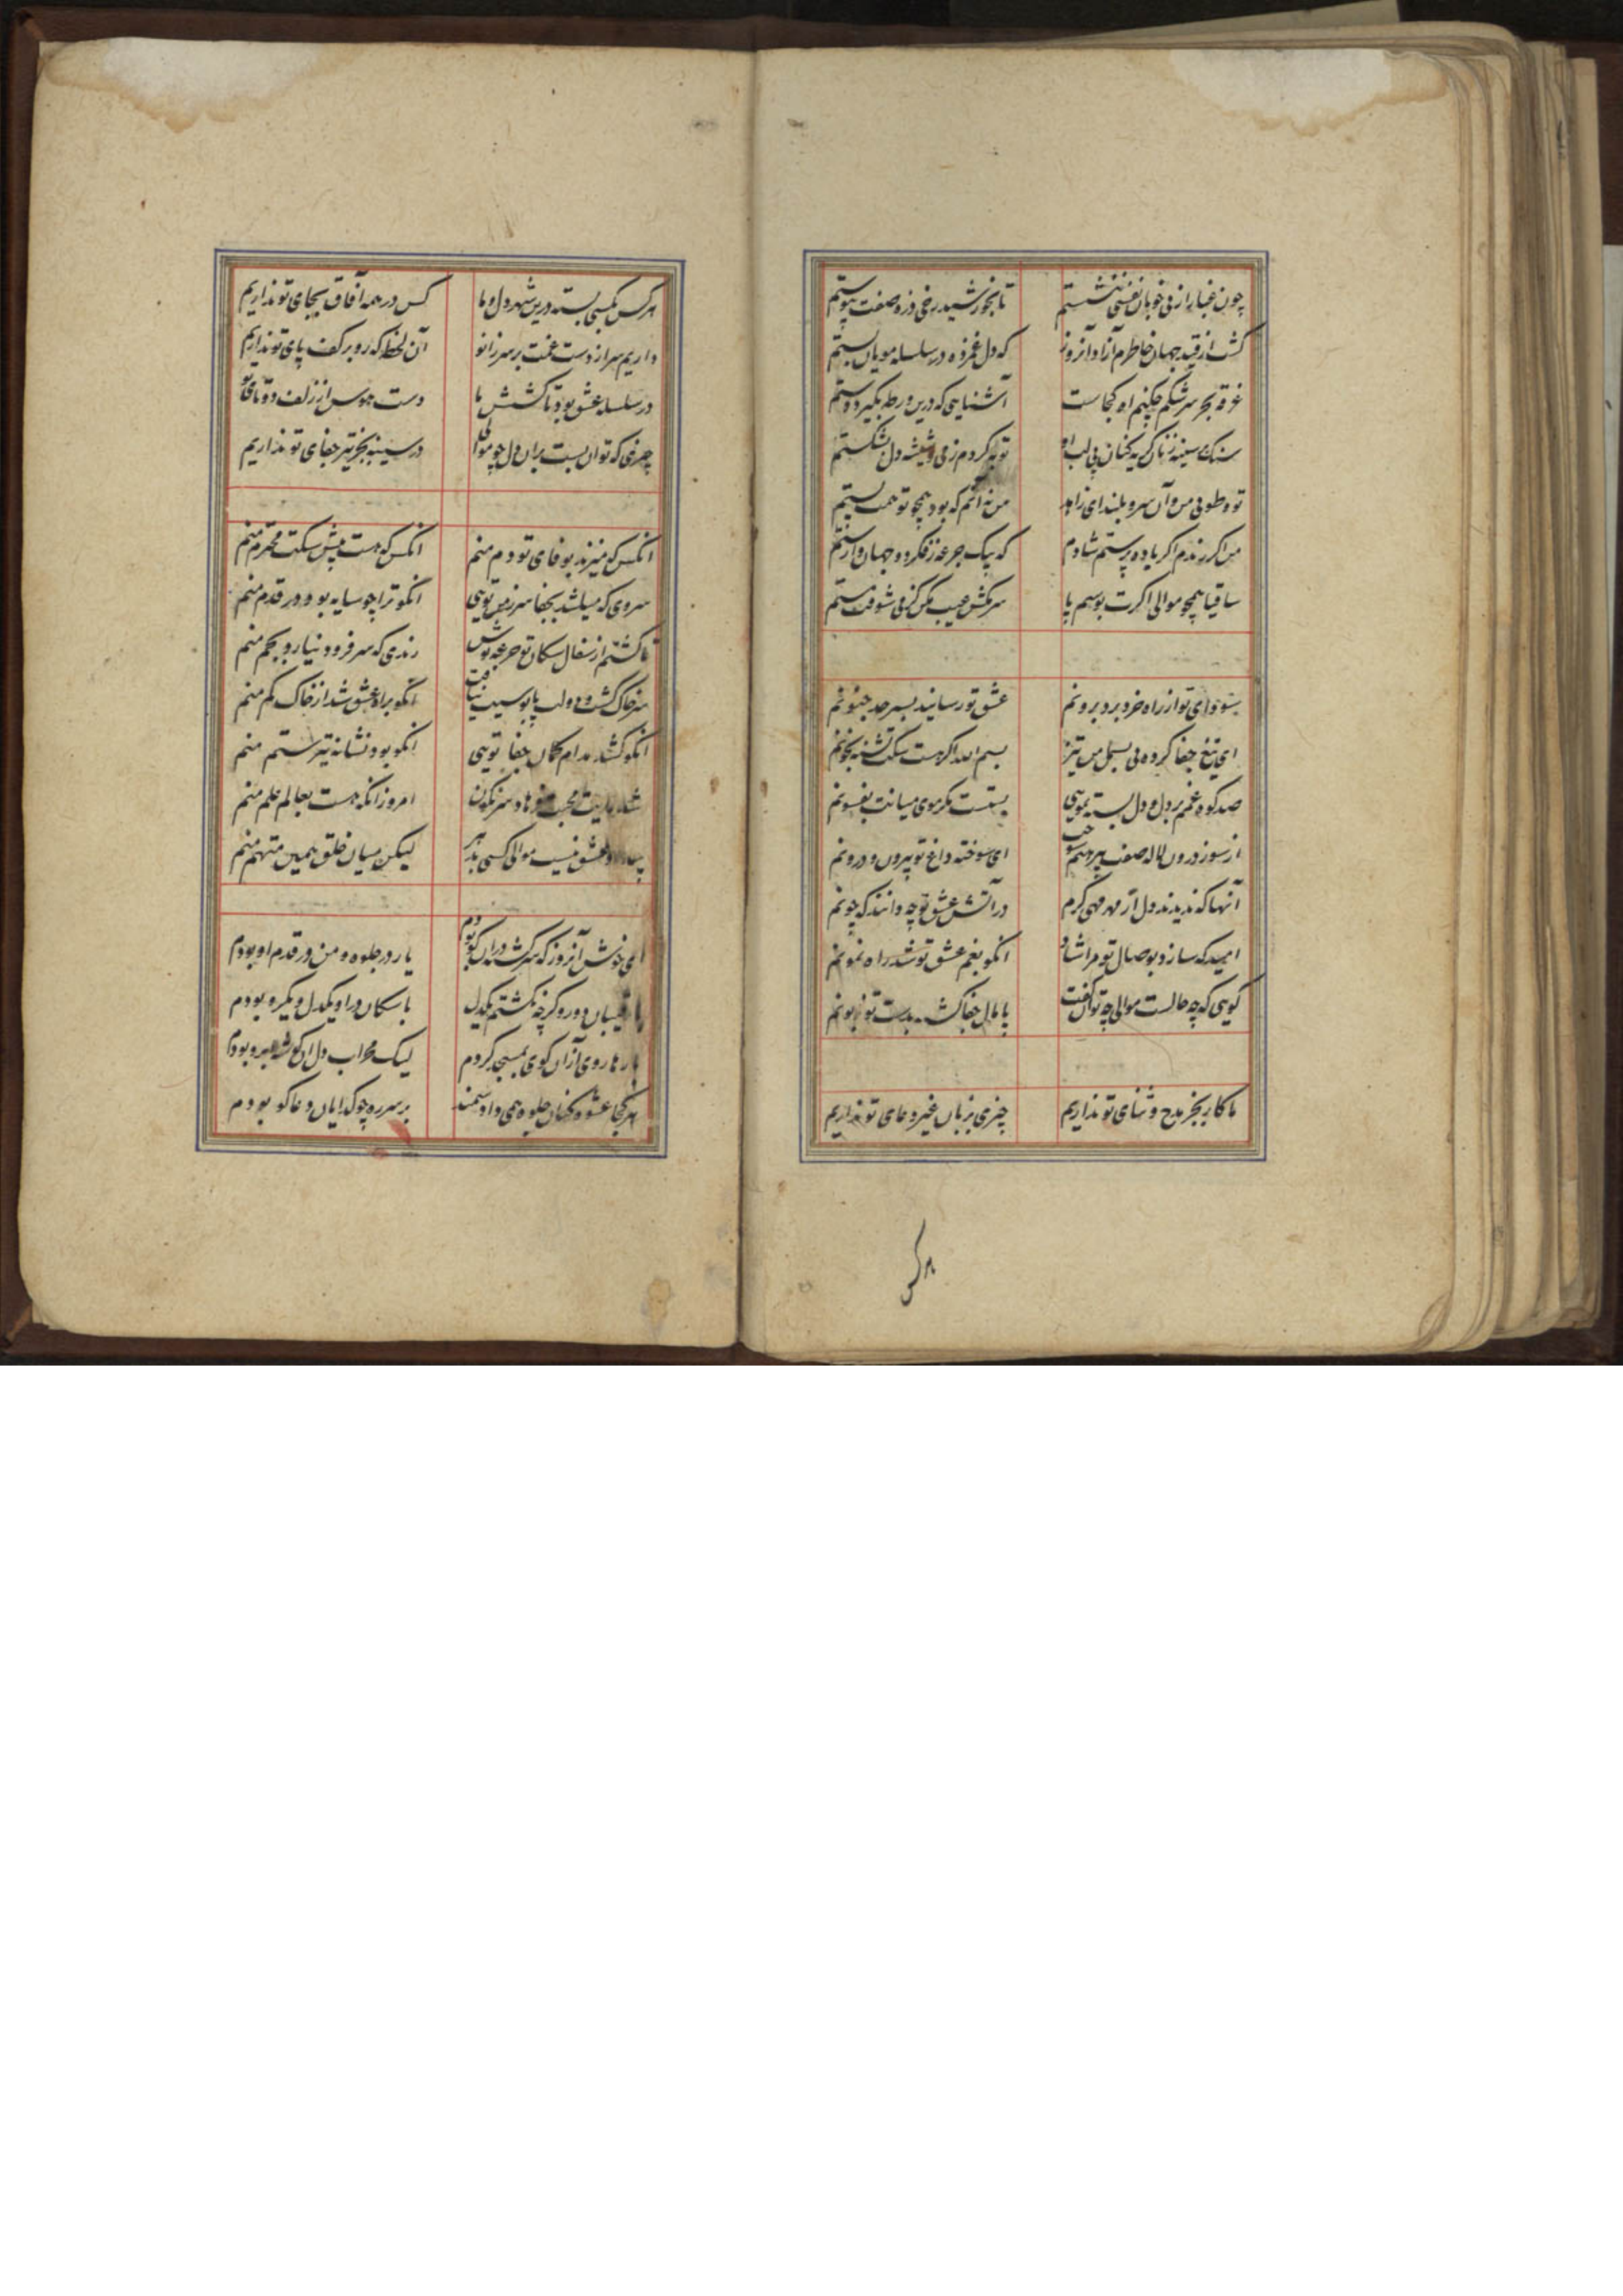 چون غبار از پی خوبان نفسی ننشستم تا بخورشید رخی ذره صفت پیوستم
کشت از قید جهان خاطرم آزاد آنروز که دل غمزده در سلسله مویان بستم
غرقه بحر سرشکم چکنم آه کجاست آشنایی که درین ورطه بکیرد دستم
سنک بر سینه زنان کریه کنان بی لب او توبه کردم ز می و شیشه دل بشکستم
تو و طوبی من و آن سرو بلند ای زاهد من نه آنم که بود همچو تو همت پستم
من اکر رندم اکر باده پرستم شادم که بیک جرعه ز فکر دو جهان وارستم
ساقیا همچو موالی اکرت بوسم پا سر مکش عیب مکن کز می شوقت مستم
سودای تو از راه خرد برد برونم عشق تو رسانید بسرحد جنونم
ای تیغ جفا کرده پی بسمل من تیز بسم الله اکر هست سکت تشنه بخونم
صد کوه غم بر دل و دل بسته بمویی بستست مکر موی میانت بفسونم
از سوز درون لاله صفت پیرهنم سوخت ای سوخته داغ تو بیرون و درونم
آنها که ندیدند دل از مهر مهی کرم در آتش عشق تو چه دانند که چونم
امید که سازد بوصال تو مرا شاد انکو بغم عشق تو شد راه نمونم
کویی که چه حالست موالی چه توان کفت پامال جفا کشته بدست تو زبونم
ما کار بجز مدح و ثنای تو نداریم چیزی بزبان غیر دعای تو نداریم
هر کس
هر کس بکسی بسته درین شهر دل و ما کس در همه آفاق بجای تو نداریم
داریم سر از دست غمت بر سر زانو آن لحظه که رو بر کف پای تو نداریم
در سلسله عشق بود تا کشش ما دست هوس از زلف دوتای تو نداریم
چیزی که توان بست بران دل چو موالی در سینه بجز تیر جفای تو نداریم
انکس که میزند بوفای تو دم منم انکس که هست پیش سکت محترم منم
سروی که میکشد بجفا سر ز من تویی انکو ترا چو سایه بود در قدم منم
تا کشتم از سفال سکان تو جرعه نوش رندی که سر فرود نیارد بجم منم
سر خاک کشت و دولت پابوسیت نیافت انکو براه عشق شد از خاک کم منم
انکو کشد مدام کمان جفا تویی انکو بود نشانه تیر ستم منم
شد رایت محبت فرهاد سرنکون امروز انکه هست بعالم علم منم
عشق نیست موالی کسی بدر لیکن میان خلق همین متهم منم
ای خوش آنروز که سرکشته دران کو بودم یار در جلوه و من در قدم او بودم
با رقیبان دو رو کرچه نکشتم یکدل با سکان در او یکدل و یکرو بودم
بارها روی از آن کوی بمسجد کردم لیک محراب دل آن کوشه ابرو بودم
هر کجا عشوه کنان جلوه همی داد سمند بر سر ره چو کدایان دعاکو بودم